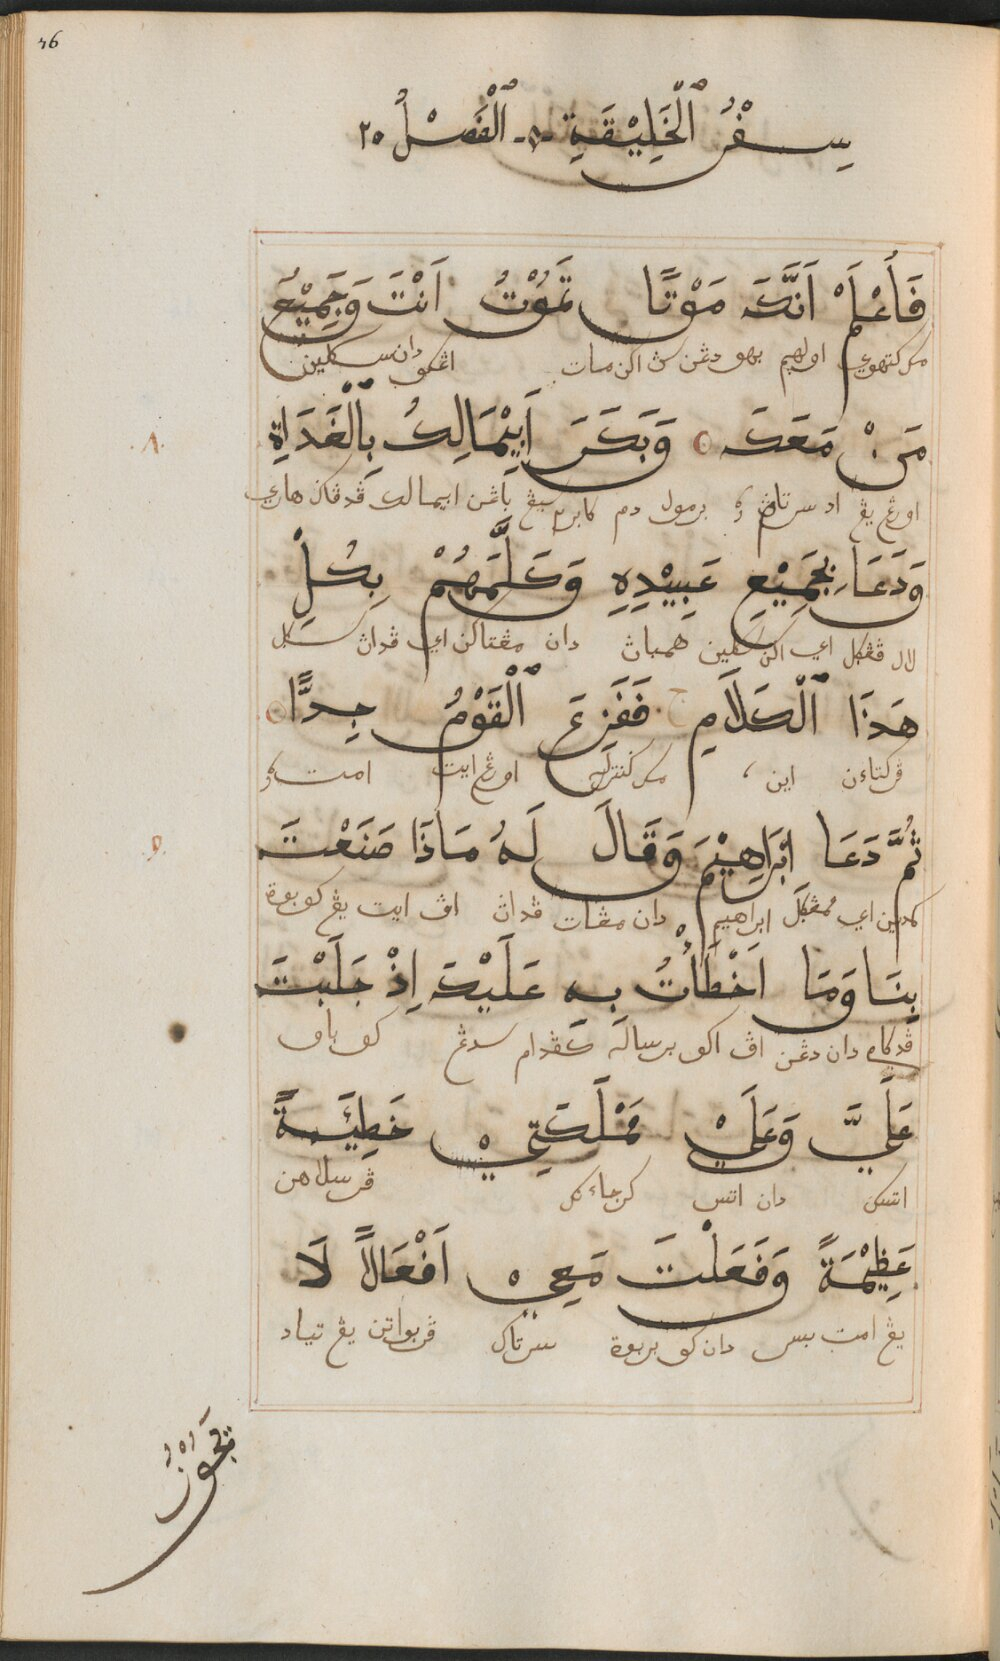 46
سِفْرُ ٱلْخَلِيْقَةِ -٨- ٱلْفَصْلُ ٢٠
فَٱعْلَمْ اَنَّكَ مَوْتًا تَمُوْتُ اَنْتَ وَجَمِيْعُ
مك كتهوي اولهم بهو دڠن مات اڠكو دان سكلين
مَنْ مَعَكَ وَبَكَرَ اَبِيْمَالِكُ بِالْغَدَاةِ
.٨.
اورڠ يڠ اد سرتاڽ برمول دم ابيمالك ڤد هاري
وَدَعَا بِجَمِيْعِ عَبِيْدِهِ وَكَلَّمَهُمْ بِكُلِّ
لال ڤڠݢل اي اكن سكلين همباڽ دان مڠتاكن اي ڤداڽ سكل
هَذَا ٱلْكَلَامِ فَفَزِعَ ٱلْقَوْمُ جِدًّا
ڤركتاءن اين مك اورڠ ايت امت
ثُمَّ دَعَا اِبْرَاهِيْمَ وَقَالَ لَهُ مَاذَا صَنَعْتَ
.٩.
كمدين اي ممڠݢل ابراهيم دان مڠات ڤداڽ اڤ ايت يڠ كو بوة
بِنَا وَمَا اَخْطَأْتُ بِهِ عَلَيْكَ اِذْ جَلَبْتَ
ڤد كامي دان دڠن اڤ اكو برساله كڤدام سدڠ كو باو
عَلَيَّ وَعَلَيْ مَمْلَكَتِيْ خَطِيَّـةً
اتسكن دان اتس كرجاءنك ڤرسلاهن
عَظِيْمَةً وَفَعَلْتَ مَعِيْ اَفْعَالًا لَا
يڠ امت بسر دان كو بربوة سرتاك ڤربواتن يڠ تياد
تَجُوْزُ